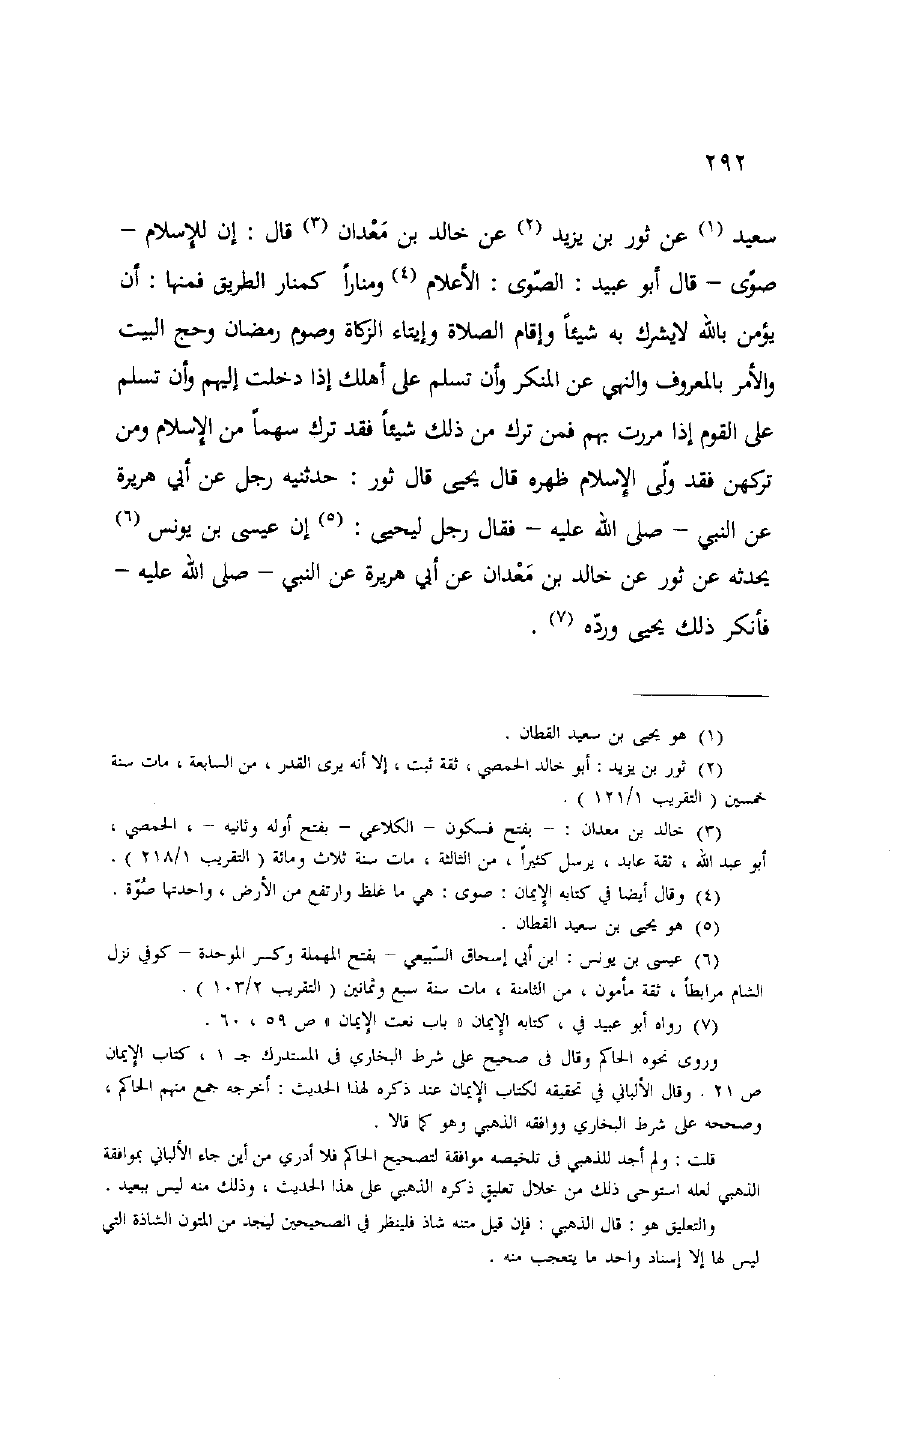 ٢٩٢
سعيد (١) عن ثور بن يزيد (٢) عن خالد بن مَعْدان (٣) قال : إن للإسلام –
صوًى – قال أبو عبيد : الصّوى : الأعلام (٤) ومناراً كمنار الطريق فمنها : أن
يؤمن بالله لايشرك به شيئاً وإقام الصلاة وإيتاء الزكاة وصوم رمضان وحج البيت
والأمر بالمعروف والنهي عن المنكر وأن تسلم على أهلك إذا دخلت إليهم وأن تسلم
على القوم إذا مررت بهم فمن ترك من ذلك شيئاً فقد ترك سهماً من الإسلام ومن
تركهن فقد ولّى الإسلام ظهره قال يحيى قال ثور : حدثنيه رجل عن أبي هريرة
عن النبي – صلى الله عليه – فقال رجل ليحيى : (٥) إن عيسى بن يونس (٦)
يحدثه عن ثور عن خالد بن مَعْدان عن أبي هريرة عن النبي – صلى الله عليه –
فأنكر ذلك يحيى وردّه (٧) .
(١) هو يحيى بن سعيد القطان .
(٢) ثور بن يزيد : أبو خالد الحمصي ، ثقة ثبت ، إلا أنه يرى القدر ، من السابعة ، مات سنة
خمسين ( التقريب ١٢١/١ ) .
(٣) خالد بن معدان : – بفتح فسكون – الكلاعي – بفتح أوله وثانيه – ، الحمصي ،
أبو عبد الله ، ثقة عابد ، يرسل كثيراً ، من الثالثة ، مات سنة ثلاث ومائة ( التقريب ٢١٨/١ ) .
(٤) وقال أيضا في كتابه الإيمان : صوى : هي ما غلظ وارتفع من الأرض ، واحدتها صُوّة .
(٥) هو يحيى بن سعيد القطان .
(٦) عيسى بن يونس : ابن أبي إسحاق السَّبيعي – بفتح المهملة وكسر الموحدة – كوفي نزل
الشام مرابطاً ، ثقة مأمون ، من الثامنة ، مات سنة سبع وثمانين ( التقريب ١٠٣/٢ ) .
(٧) رواه أبو عبيد في ، كتابه الإيمان « باب نعت الإيمان » ص ٥٩ ، ٦٠ .
وروى نحوه الحاكم وقال في صحيح على شرط البخاري في المستدرك جـ ١ ، كتاب الإيمان
ص ٢١ . وقال الألباني في تحقيقه لكتاب الإيمان عند ذكره لهذا الحديث : أخرجه جمع منهم الحاكم ،
وصححه على شرط البخاري ووافقه الذهبي وهو كما قالا .
قلت : ولم أجد للذهبي في تلخيصه موافقة لتصحيح الحاكم فلا أدري من أين جاء الألباني بموافقة
الذهبي لعله استوحى ذلك من خلال تعليق ذكره الذهبي على هذا الحديث ، وذلك منه ليس ببعيد .
والتعليق هو : قال الذهبي : فإن قيل متنه شاذ فلينظر في الصحيحين ليجد من المتون الشاذة التي
ليس لها إلا إسناد واحد ما يتعجب منه .